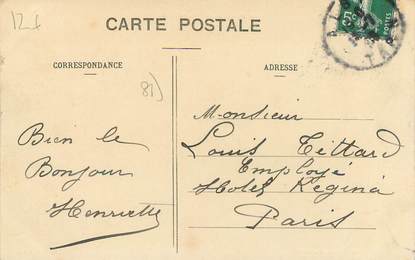 12 f
CARTE POSTALE
CORRESPONDANCE
ADRESSE
81)
Bien le
Bonjour
Henriette
Monsieur
Louis Tittard
Employé
Hotel Regina
Paris
5c
POSTES